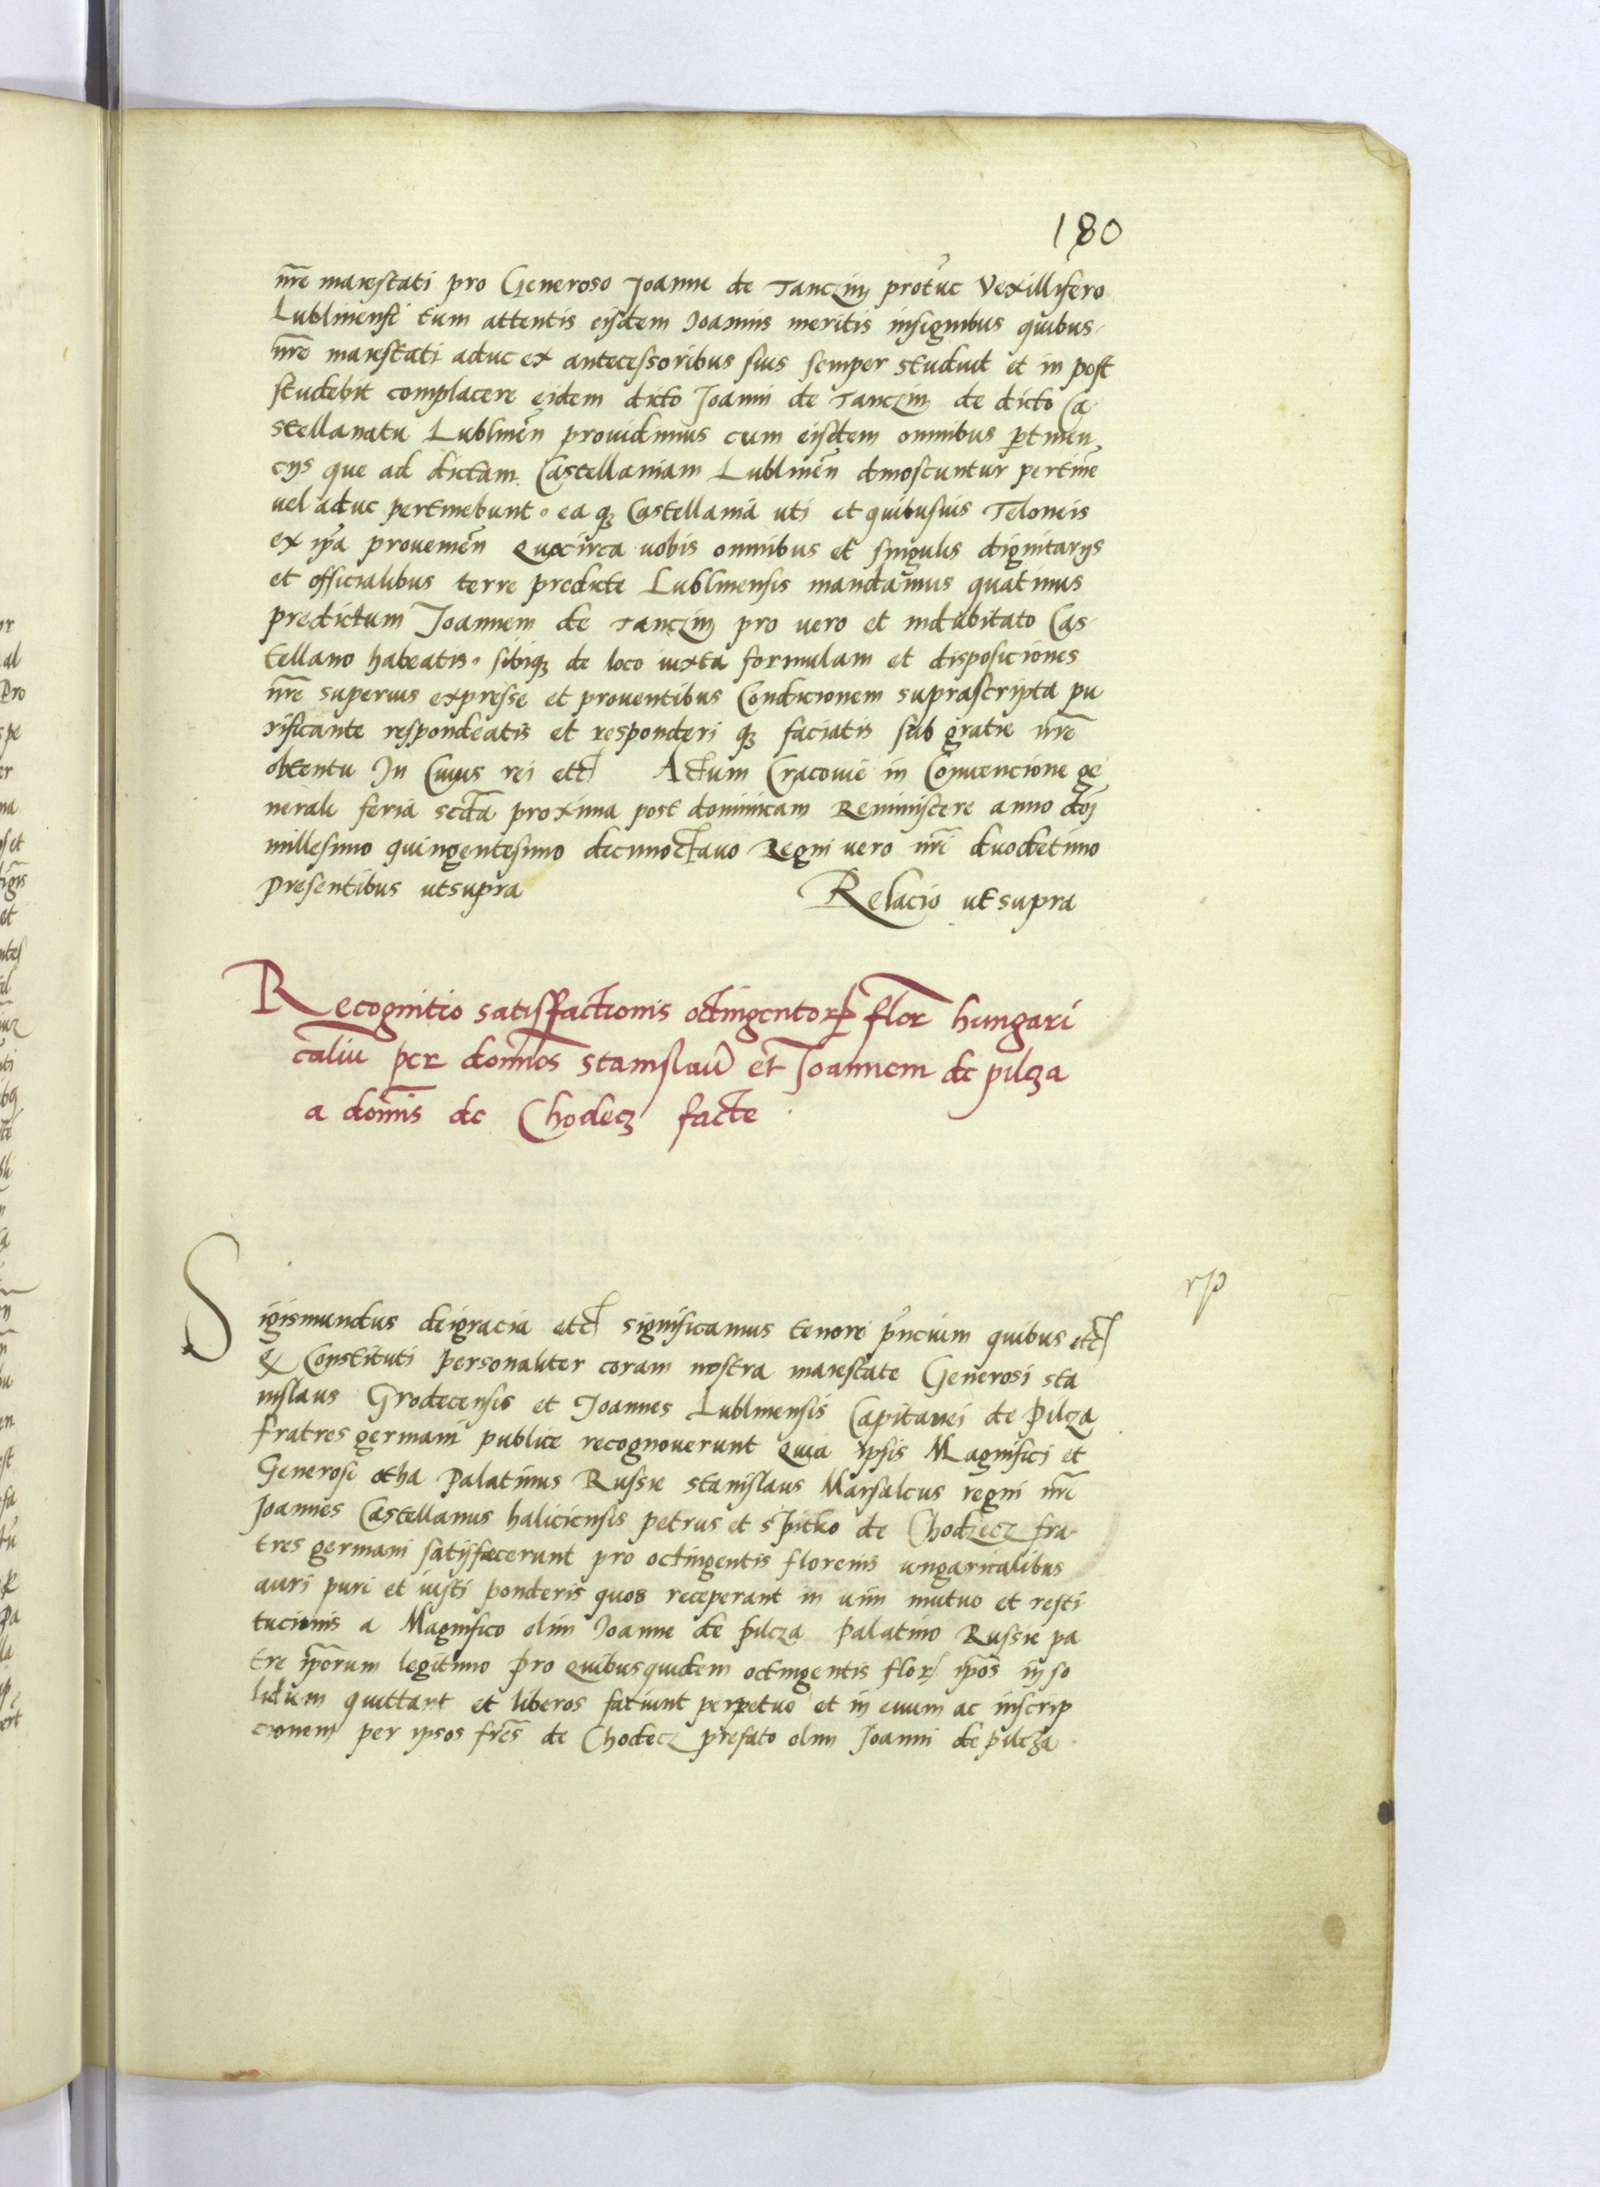 180
nr̃e maiestati pro Generoso Joanne de Tanczin protũc Vexillifero
Lublinensi tum attentis eisdem Joannis meritis insignibus quibus
nr̃e maiestati aduc ex antecessoribus suis semper studuit et in post
studebit complacere eidem dicto Joanni de Tanczin de dicto Ca-
stellanatu Lublineñ prouidimus cum eisdem omnibus ptinen
cijs que ad dictam Castellaniam Lublineñ dinoscuntur pertinẽ
uel aduc pertinebunt. eaqȝ Castellania uti et quibusuis Teloneis
ex ip̃a proueneñ Quocirca uobis omnibus et singulis dignitarijs
et officialibus terre predicte Lublinensis mandamus quatinus
predictum Joannem de Tanczin pro vero et indubitato Cas-
tellano habeatis. sibiqȝ de loco iuxta formulam et disposiciones
nr̃e superius expresse et prouentibus Condicionem suprascripta pu
rificante respondeatis et responderi qȝ faciatis sub gratie nr̃e
obtentu In Cuius rei etc Actum Cracouie in Conuencione ge
nerali feria scd̃a proxima post dominicam Reminiscere anno doĩ
millesimo quingentesimo decimoctauo Regni vero nr̃i duodecimo
presentibus utsupra Relacio utsupra
Recognitio satisfactionis octingentorꝝ flor̃ hungari
caliũ per dom̃nos Stanislaũ et Joannem de pilcza
a dom̃is de Chodecz facte
rp
Sigismundus deigracia etc significamus tenore p̃ncium quibus etc
Qȝ Constituti personaliter coram nostra maiestate Generosi sta
nislaus Grodecensis et Joannes Lublinensis Capitanei de Pilcza
fratres germani publice recognouerunt Quia ipsis Magnifici et
Generosi otha Palatinus Russie stanislaus Marsalcus regni nr̃i
Joannes Castellanus haliciensis petrus et spitko de Chodzecz fra-
tres germani satisfecerunt pro octingentis florenis ungaricalibus
auri puri et iusti ponderis quos receperant in uim mutuo et resti
tucionis a Magnifico olim Joanne de pilcza Palatino Russie pa
tre ip̃orum legitimo Pro quibusquidem octingentis flor ip̃os in so
lidum quittant et liberos faciunt perpetuo et in euum ac inscrip
cionem per ipsos fr̃es de Chodecz prefato olim Joanni de pilcza